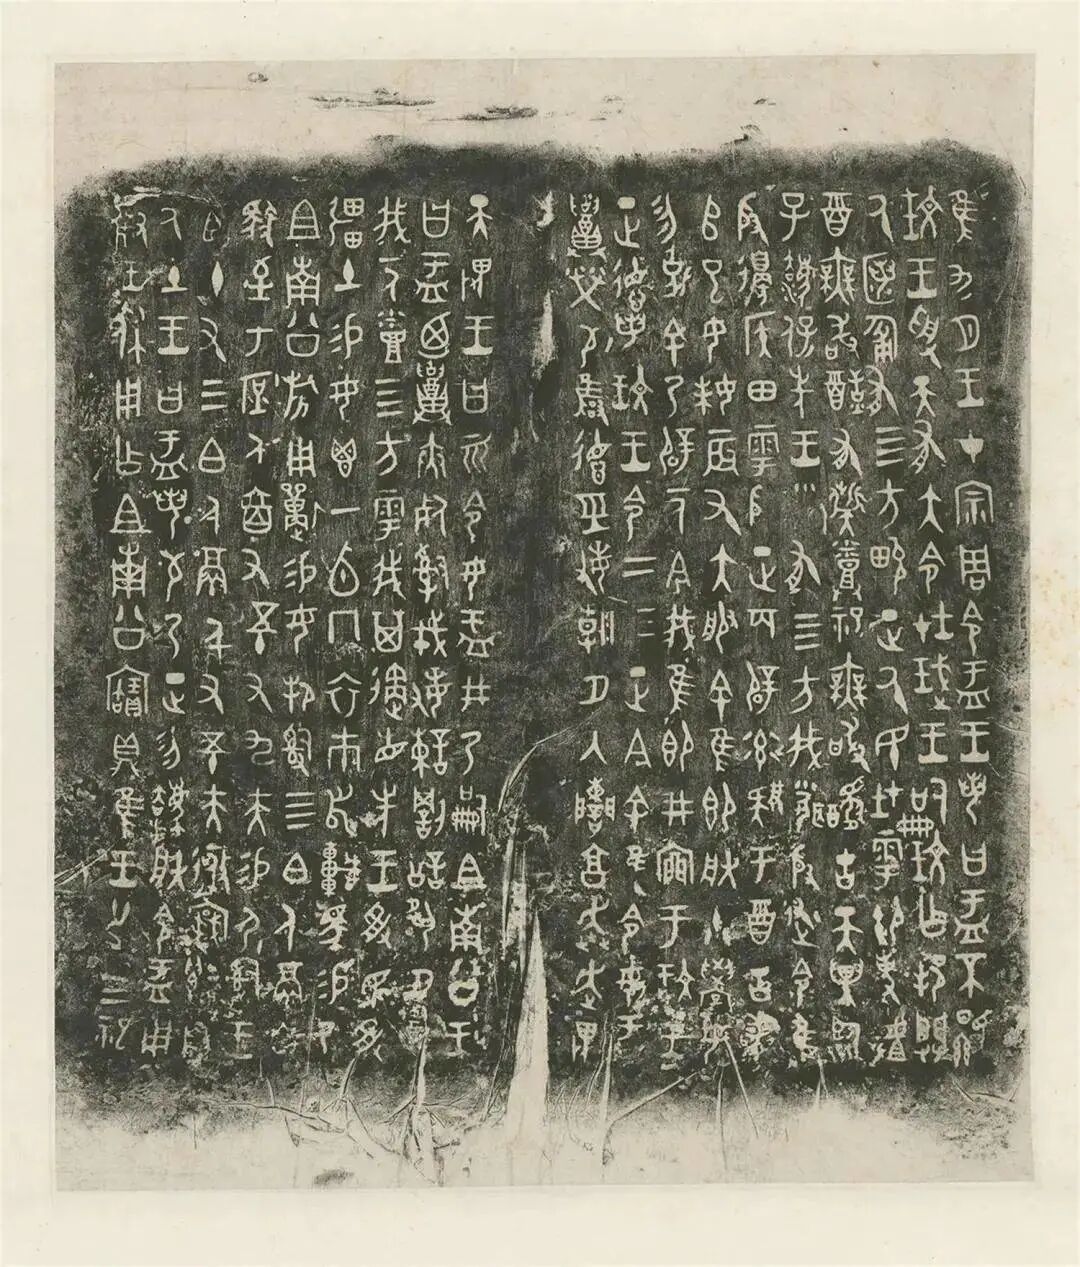 隹九月王才宗周令盂王若曰盂不顯
玟王受天有大令在珷王嗣玟乍邦闢
厥匿匍有四方畯正厥民在雩御事𠭯
酉無敢𨡏有髭烝祀無敢𨢑古天異臨
子灋保先王有四方我聞殷述令隹
殷邊侯田雩殷正百辟率肄于酉古喪
𠂤已女妹辰又大服余隹即朕小學女
勿剋余乃辟一人今我隹即井㐭于玟王
正德若玟王令二三正今余隹令女盂
召榮敬雍德巠敏朝夕入讕享奔走畏
天畏王曰令女盂井乃嗣且南公王
曰盂廼召夾死司戎敏諫罰訟夙夕召
我一人烝四方雩我其遹省先王受民受
疆土易女鬯一卣冂衣巿舄車馬易乃
且南公旂用狩易女邦司四白人鬲自
馭至于庶人六百又五十又九夫易尸司王
臣十又三白人鬲千又五十夫遷自
厥土王曰盂若敬乃正勿灋朕令盂用
對王休用乍且南公寶鼎隹王廿又三祀